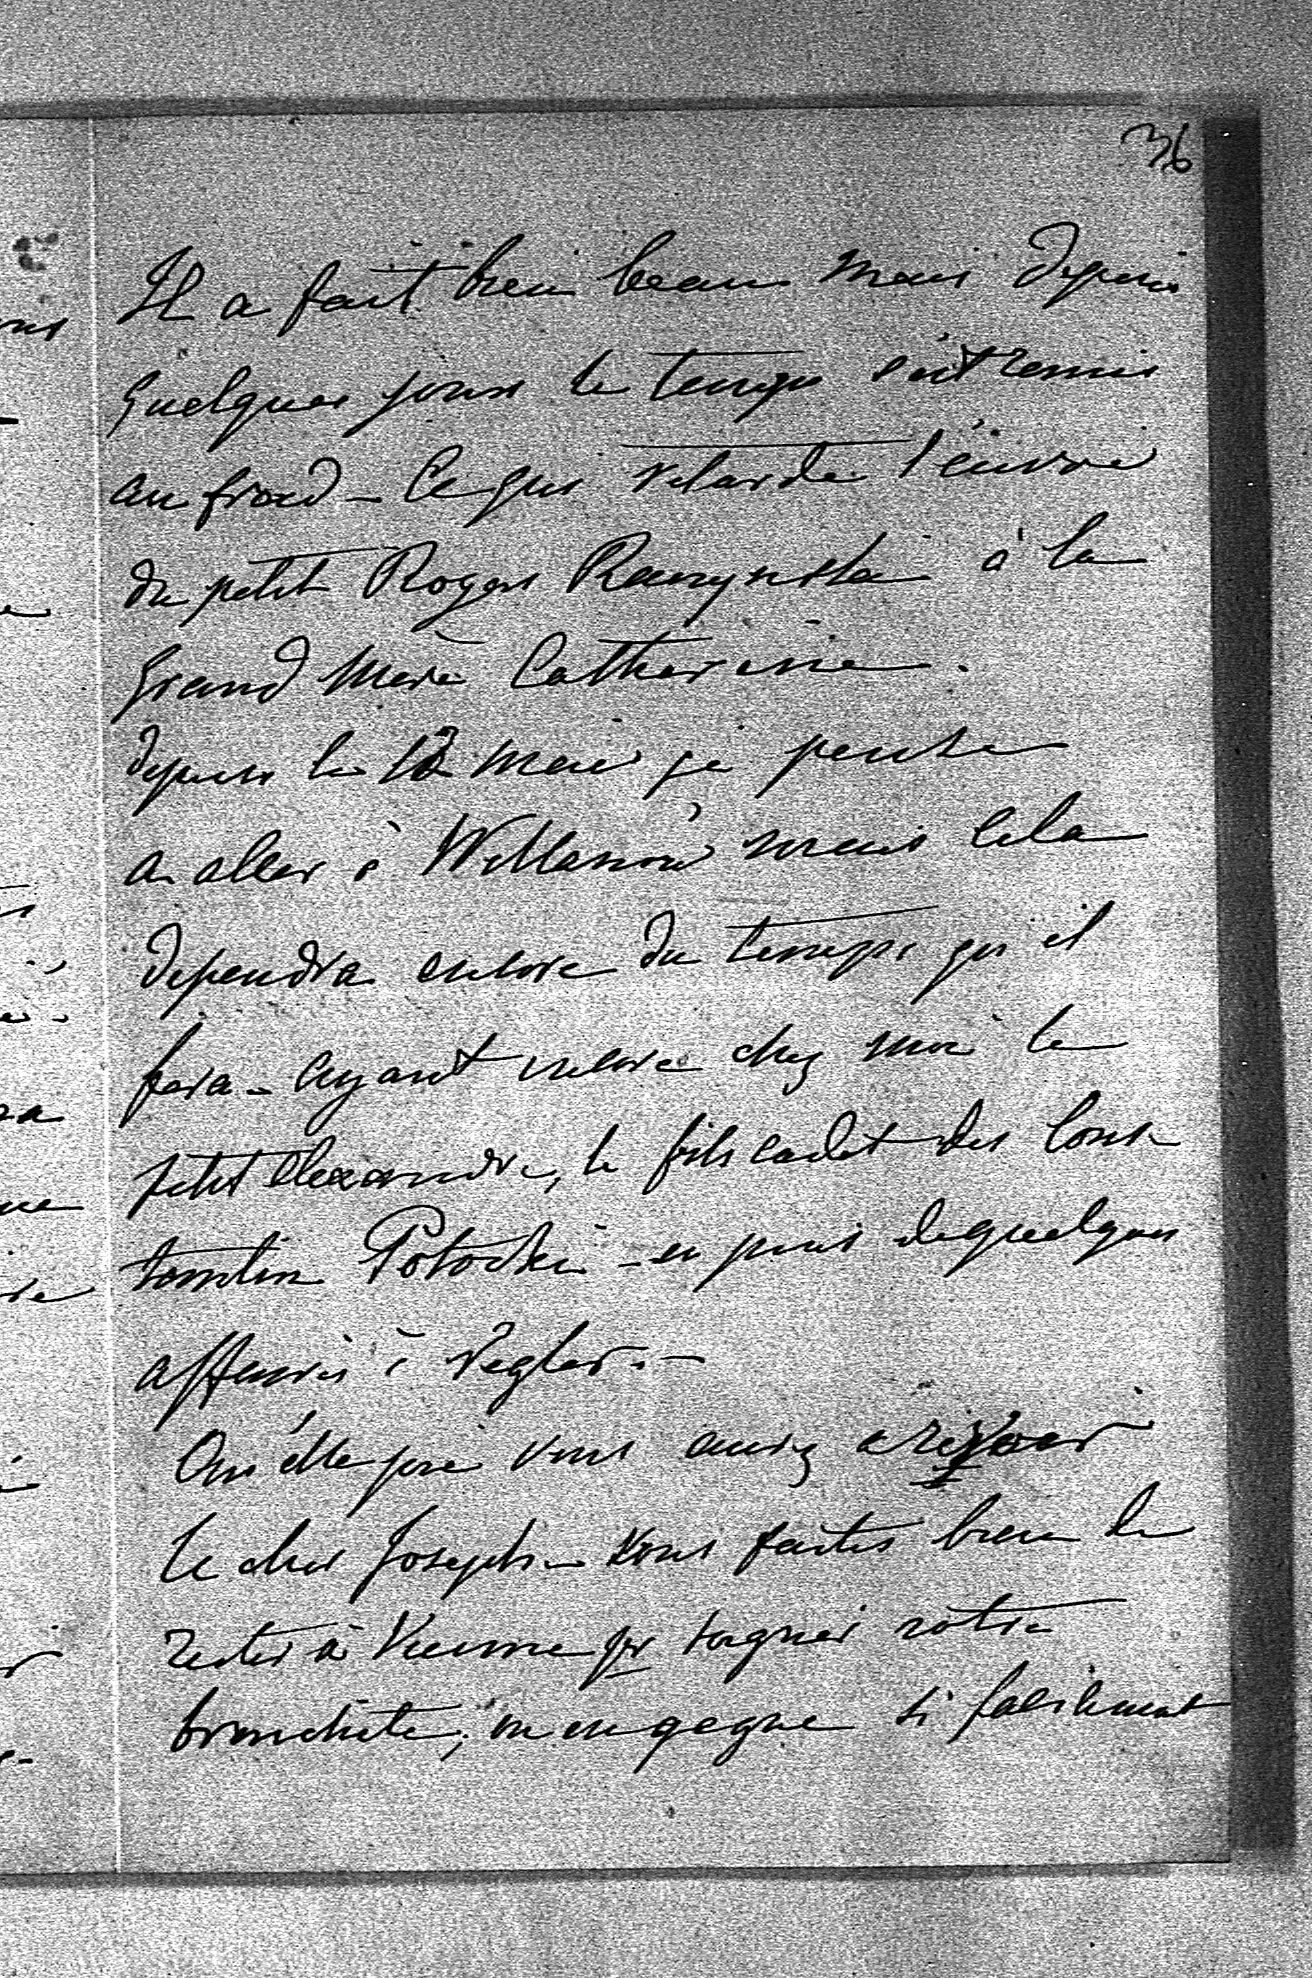 36
Il a fait bien beau mais depuis
quelques jours le temps s'est remis
au froid – ce qui retarde l'envoi
du petit Roger Raczynski à la
Grand Mère Catherine.
depuis le 12 mai je pense
a aller à Willanów mais cela
dependra encore du temps qu'il
fera – ayant encore chez moi le
petit Alexandre, le fils cadet des Cons-
tantin Potocki – en puis de quelques
affaires à regler. –
Quelle joie vous aurez a revoir
le cher Joseph – vous faites bien de
rester à Vienne pr soigner votre
bronchite, on en gagne si facilement